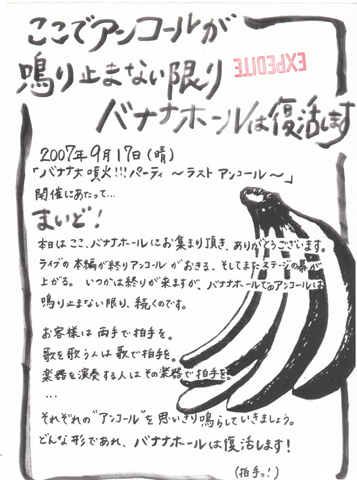 ここでアンコールが
鳴り止まない限り
EXPEDITE
バナナホールは復活します
2007年9月17日(晴)
「バナナ大噴火!!!パーティ ～ラスト アンコール～」
開催にあたって…
まいど!
本日はここ、バナナホールにお集まり頂き、ありがとうございます。
ライブの本編が終りアンコールがおきる、そしてまたステージの幕が
上がる。いつかは終りが来ますが、バナナホールでのアンコールは
鳴り止まない限り、続くのです。
お客様は両手で拍手を。
歌を歌う人は歌で拍手を。
楽器を演奏する人はその楽器で拍手を。
…
それぞれの"アンコール"を思いきり鳴らしていきましょう。
どんな形であれ、バナナホールは復活します!
(拍手っ!)